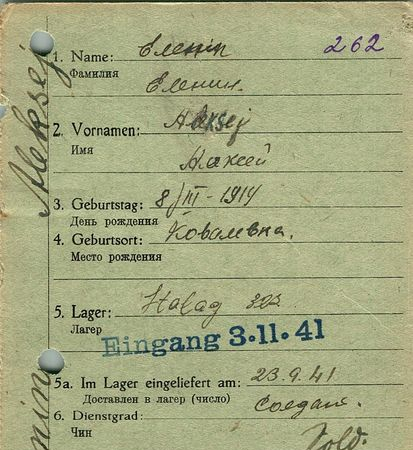 262
1. Name: Еленін
Фамилия
Еленин.
2. Vornamen: Aleksej
Имя
Алексей
3. Geburtstag: 8/III-1914
День рождения
4. Geburtsort:
Место рождения
5. Lager: Stalag 303
Лагер
Eingang 3.11.41
5a. Im Lager eingeliefert am: 23.9.41
Доставлен в лагер (число)
6. Dienstgrad: Солдат.
Чин
Sold.
Aleksej